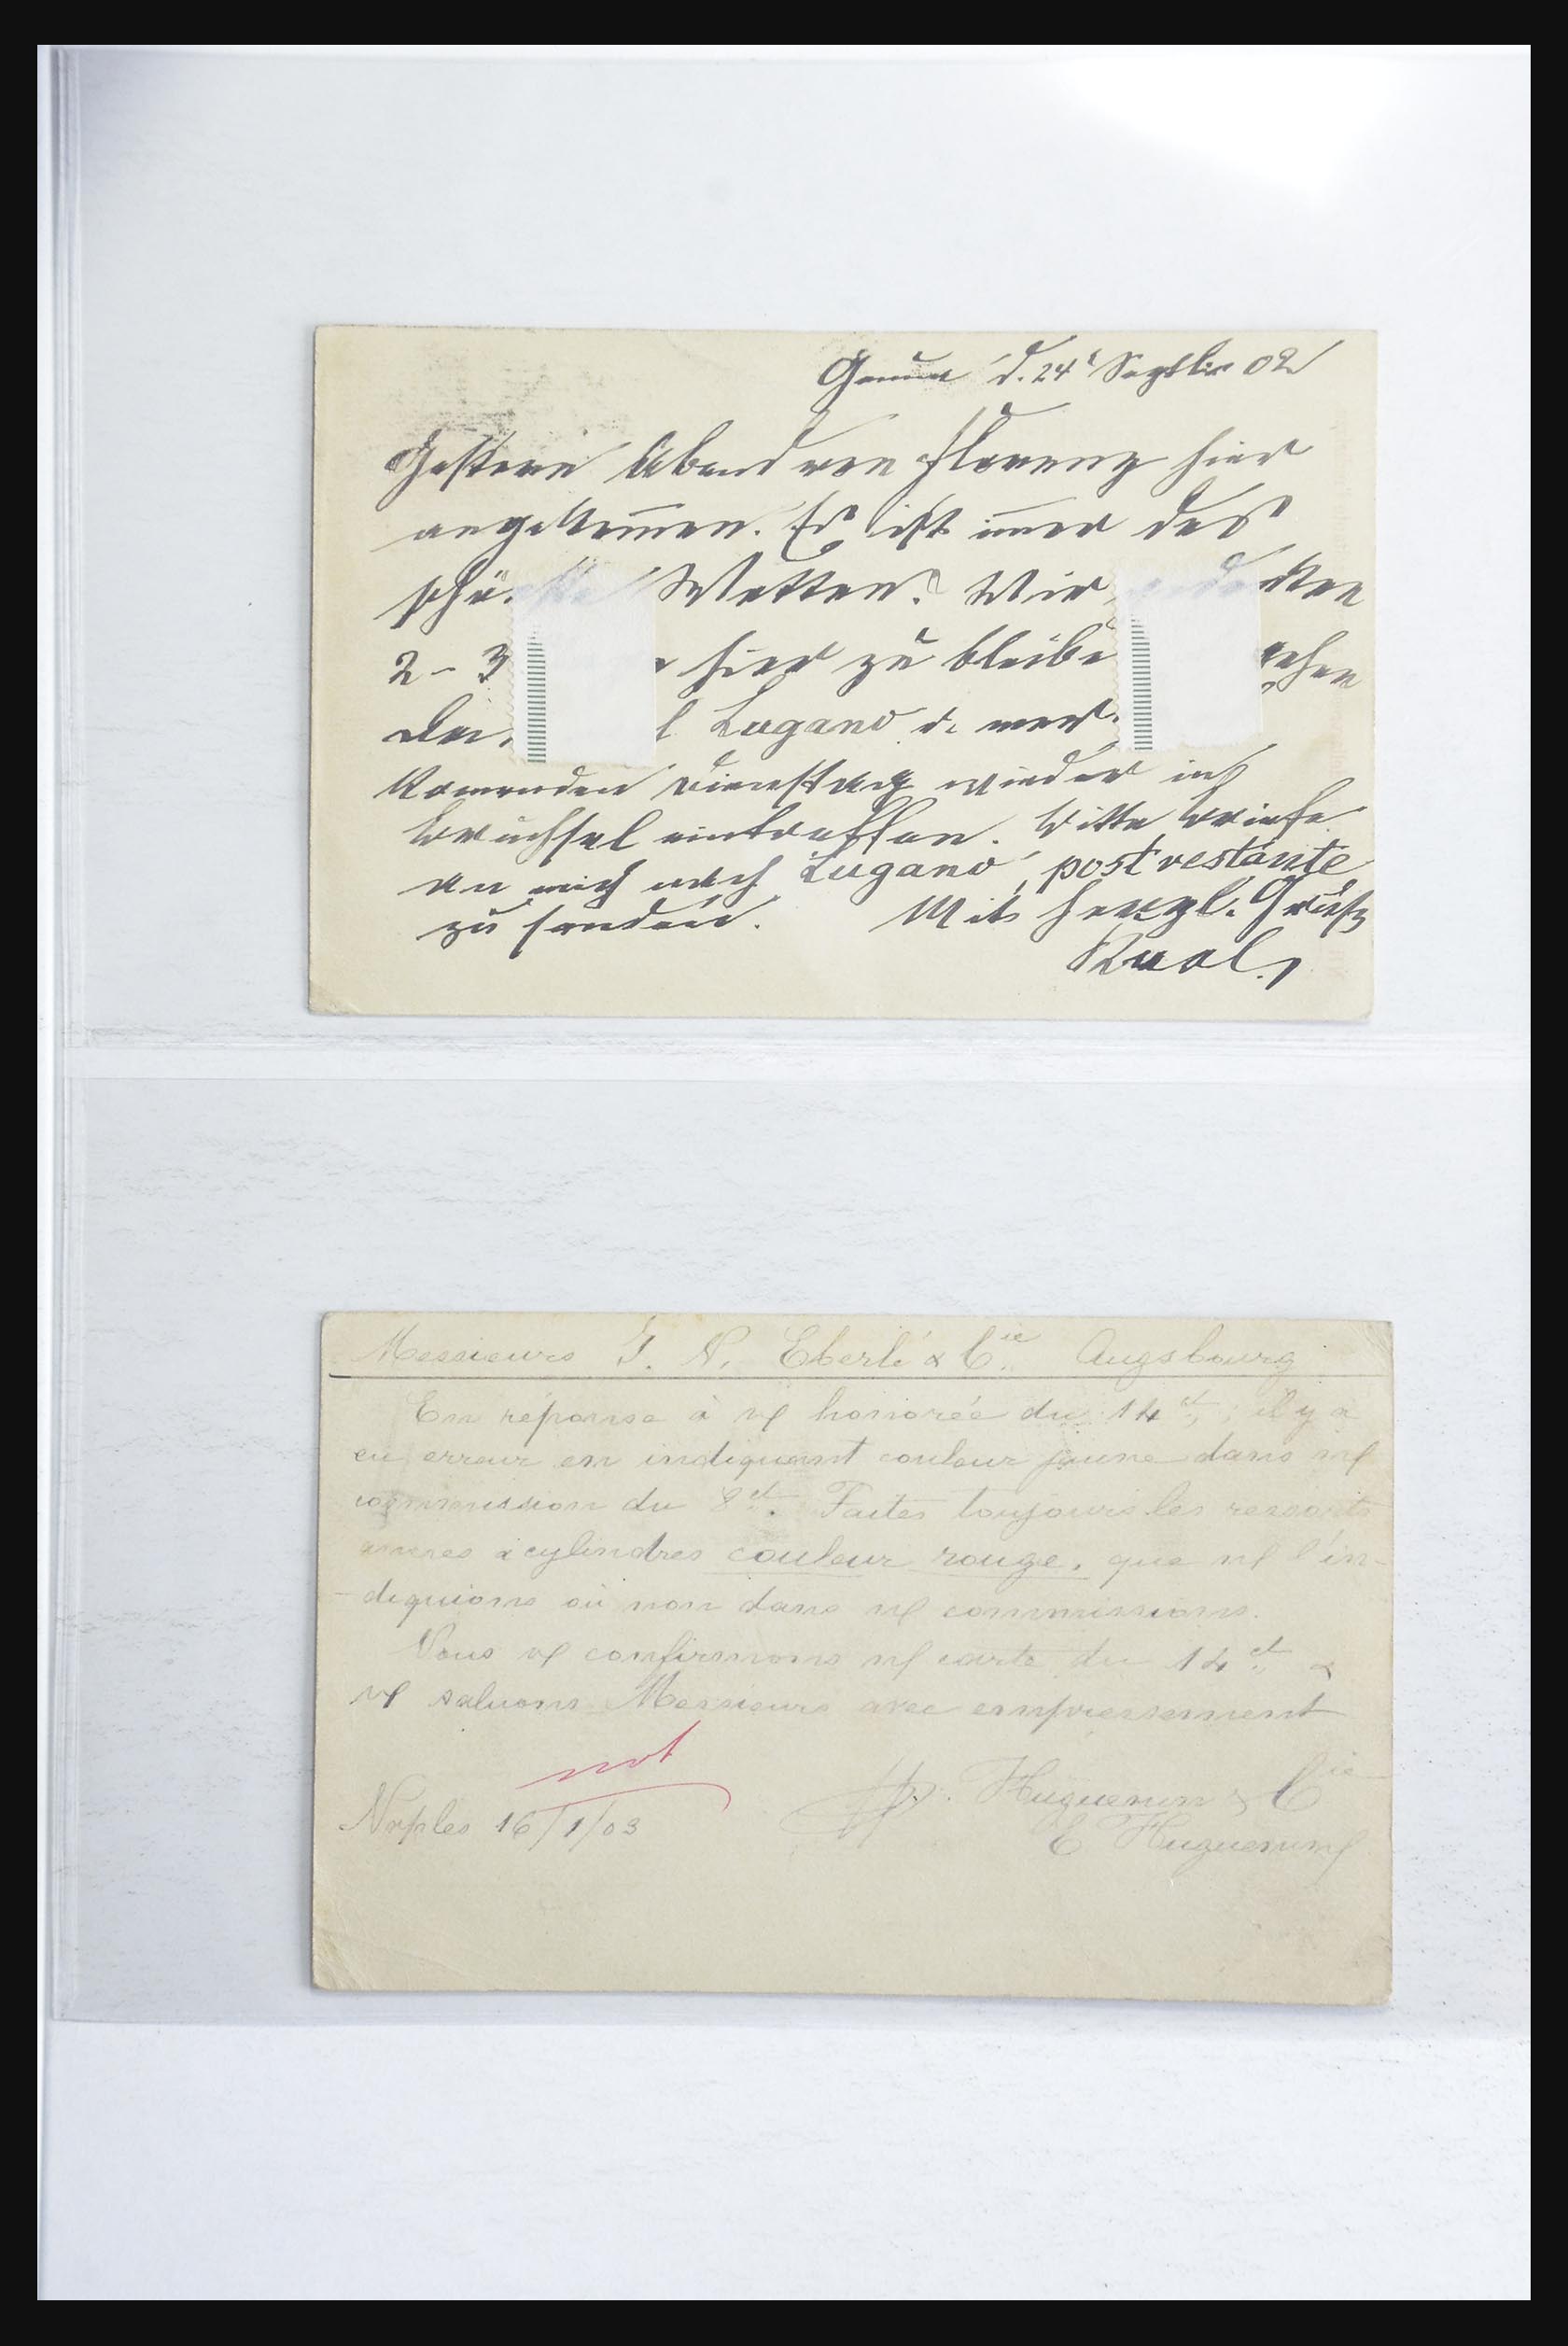 Genua d. 24t Septbr 02
Gestern Abend von Florenz hier
angekom̄en. Es ist im̄er das
schö Wetter. Wir
2 – 3 hier zu bleibe gehen
Lugano d. wer
kommenden Dienstag wieder in
Bruchsal eintreffen. Bitte Briefe
an mich nach Lugano, postrestante
zu senden. Mit herzl. Grüße
Messieurs J. N. Eberlé & Cie. Augsbourg
En réponse à vf honorée du 14 ct; il y a
eu erreur en indiquant couleur jaune dans nf
commission du 8 ct. Faites toujours les ressorts
à cylindres couleur rouge, que nf l'in-
-diquions où non dans nf commissions.
Nous vf confirmons nf carte du 14 ct &
vf saluons Messieurs avec empressement
not
Naples 16/1/03
Huguenin & Cie
E Huguenin